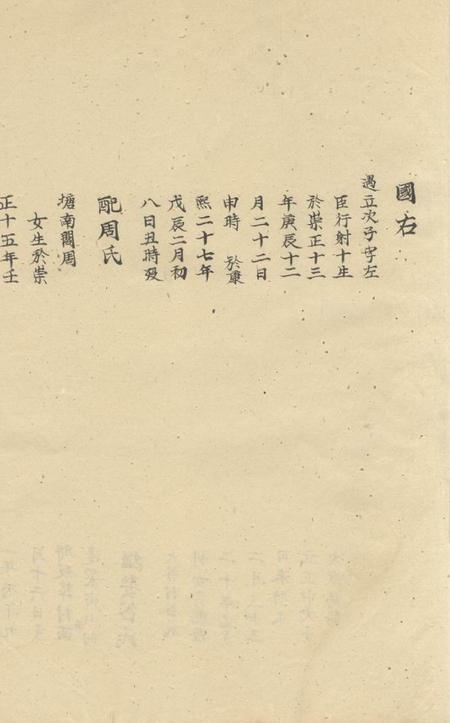 國右
遇立次子字左
臣行射十生
於崇正十三
年庚辰十二
月二十二日
申時 於康
熙二十七年
戊辰二月初
八日丑時歿
配周氏
塘南周
女生於崇
正十五年壬